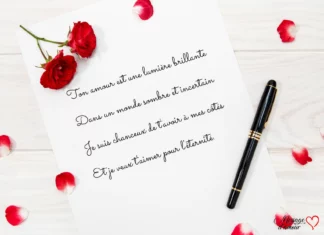 Ton amour est une lumière brillante
Dans un monde sombre et incertain
Je suis chanceux de t'avoir à mes côtés
Et je veux t'aimer pour l'éternité